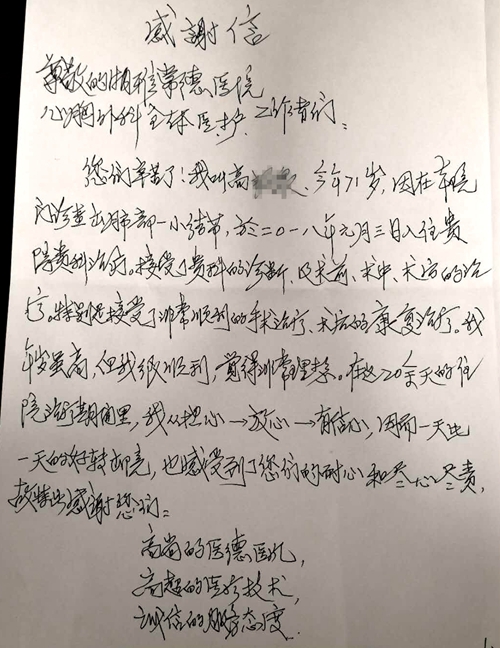 感謝信
尊敬的湘雅常德医院
心胸外科全体医护工作者们:
您们辛苦了!我叫高 今年71岁,因在本院
门诊查出肺部一小结节,於二0一八年元月三日入住贵
院贵科治疗。接受了贵科的诊断、及术前、术中、术后的治
疗。特别是接受了非常顺利的手术治疗、术后的康复治疗。我
年岁虽高,但我很顺利,觉得非常理想。在这20余天的住
院治疗期间里,我从担心→放心→有信心,因而一天比
一天的好转出院,也感受到了您们的耐心和尽心尽责,
故特出感谢您们:
高尚的医德医风,
高超的医疗技术,
诚信的服务态度.